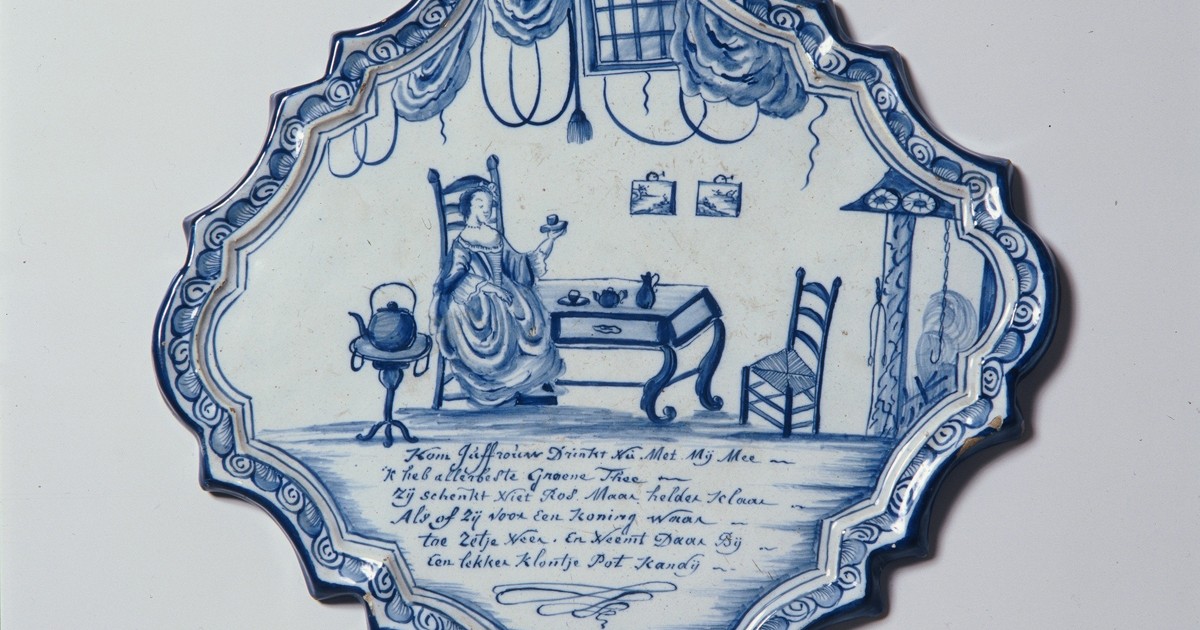 Kom Juffrouw Drinkt Nu Met Mij Mee
'k heb allerbeste Groene Thee
Zij schenkt Niet Ros Maar helder klaar
Als of Zij voor Een Koning waar
toe Zetje Neer. En Neemt Daar Bij
Een lekker klontje Pot kandij